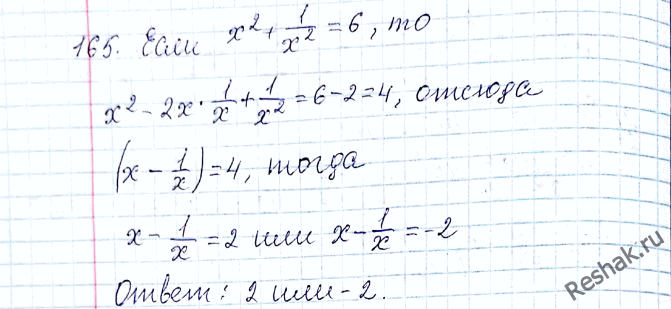 165. Если x² + 1/x² = 6, то
x² - 2x · 1/x + 1/x² = 6 - 2 = 4, отсюда
(x - 1/x) = 4, тогда
x - 1/x = 2 или x - 1/x = -2
Ответ: 2 или -2.
Reshak.ru